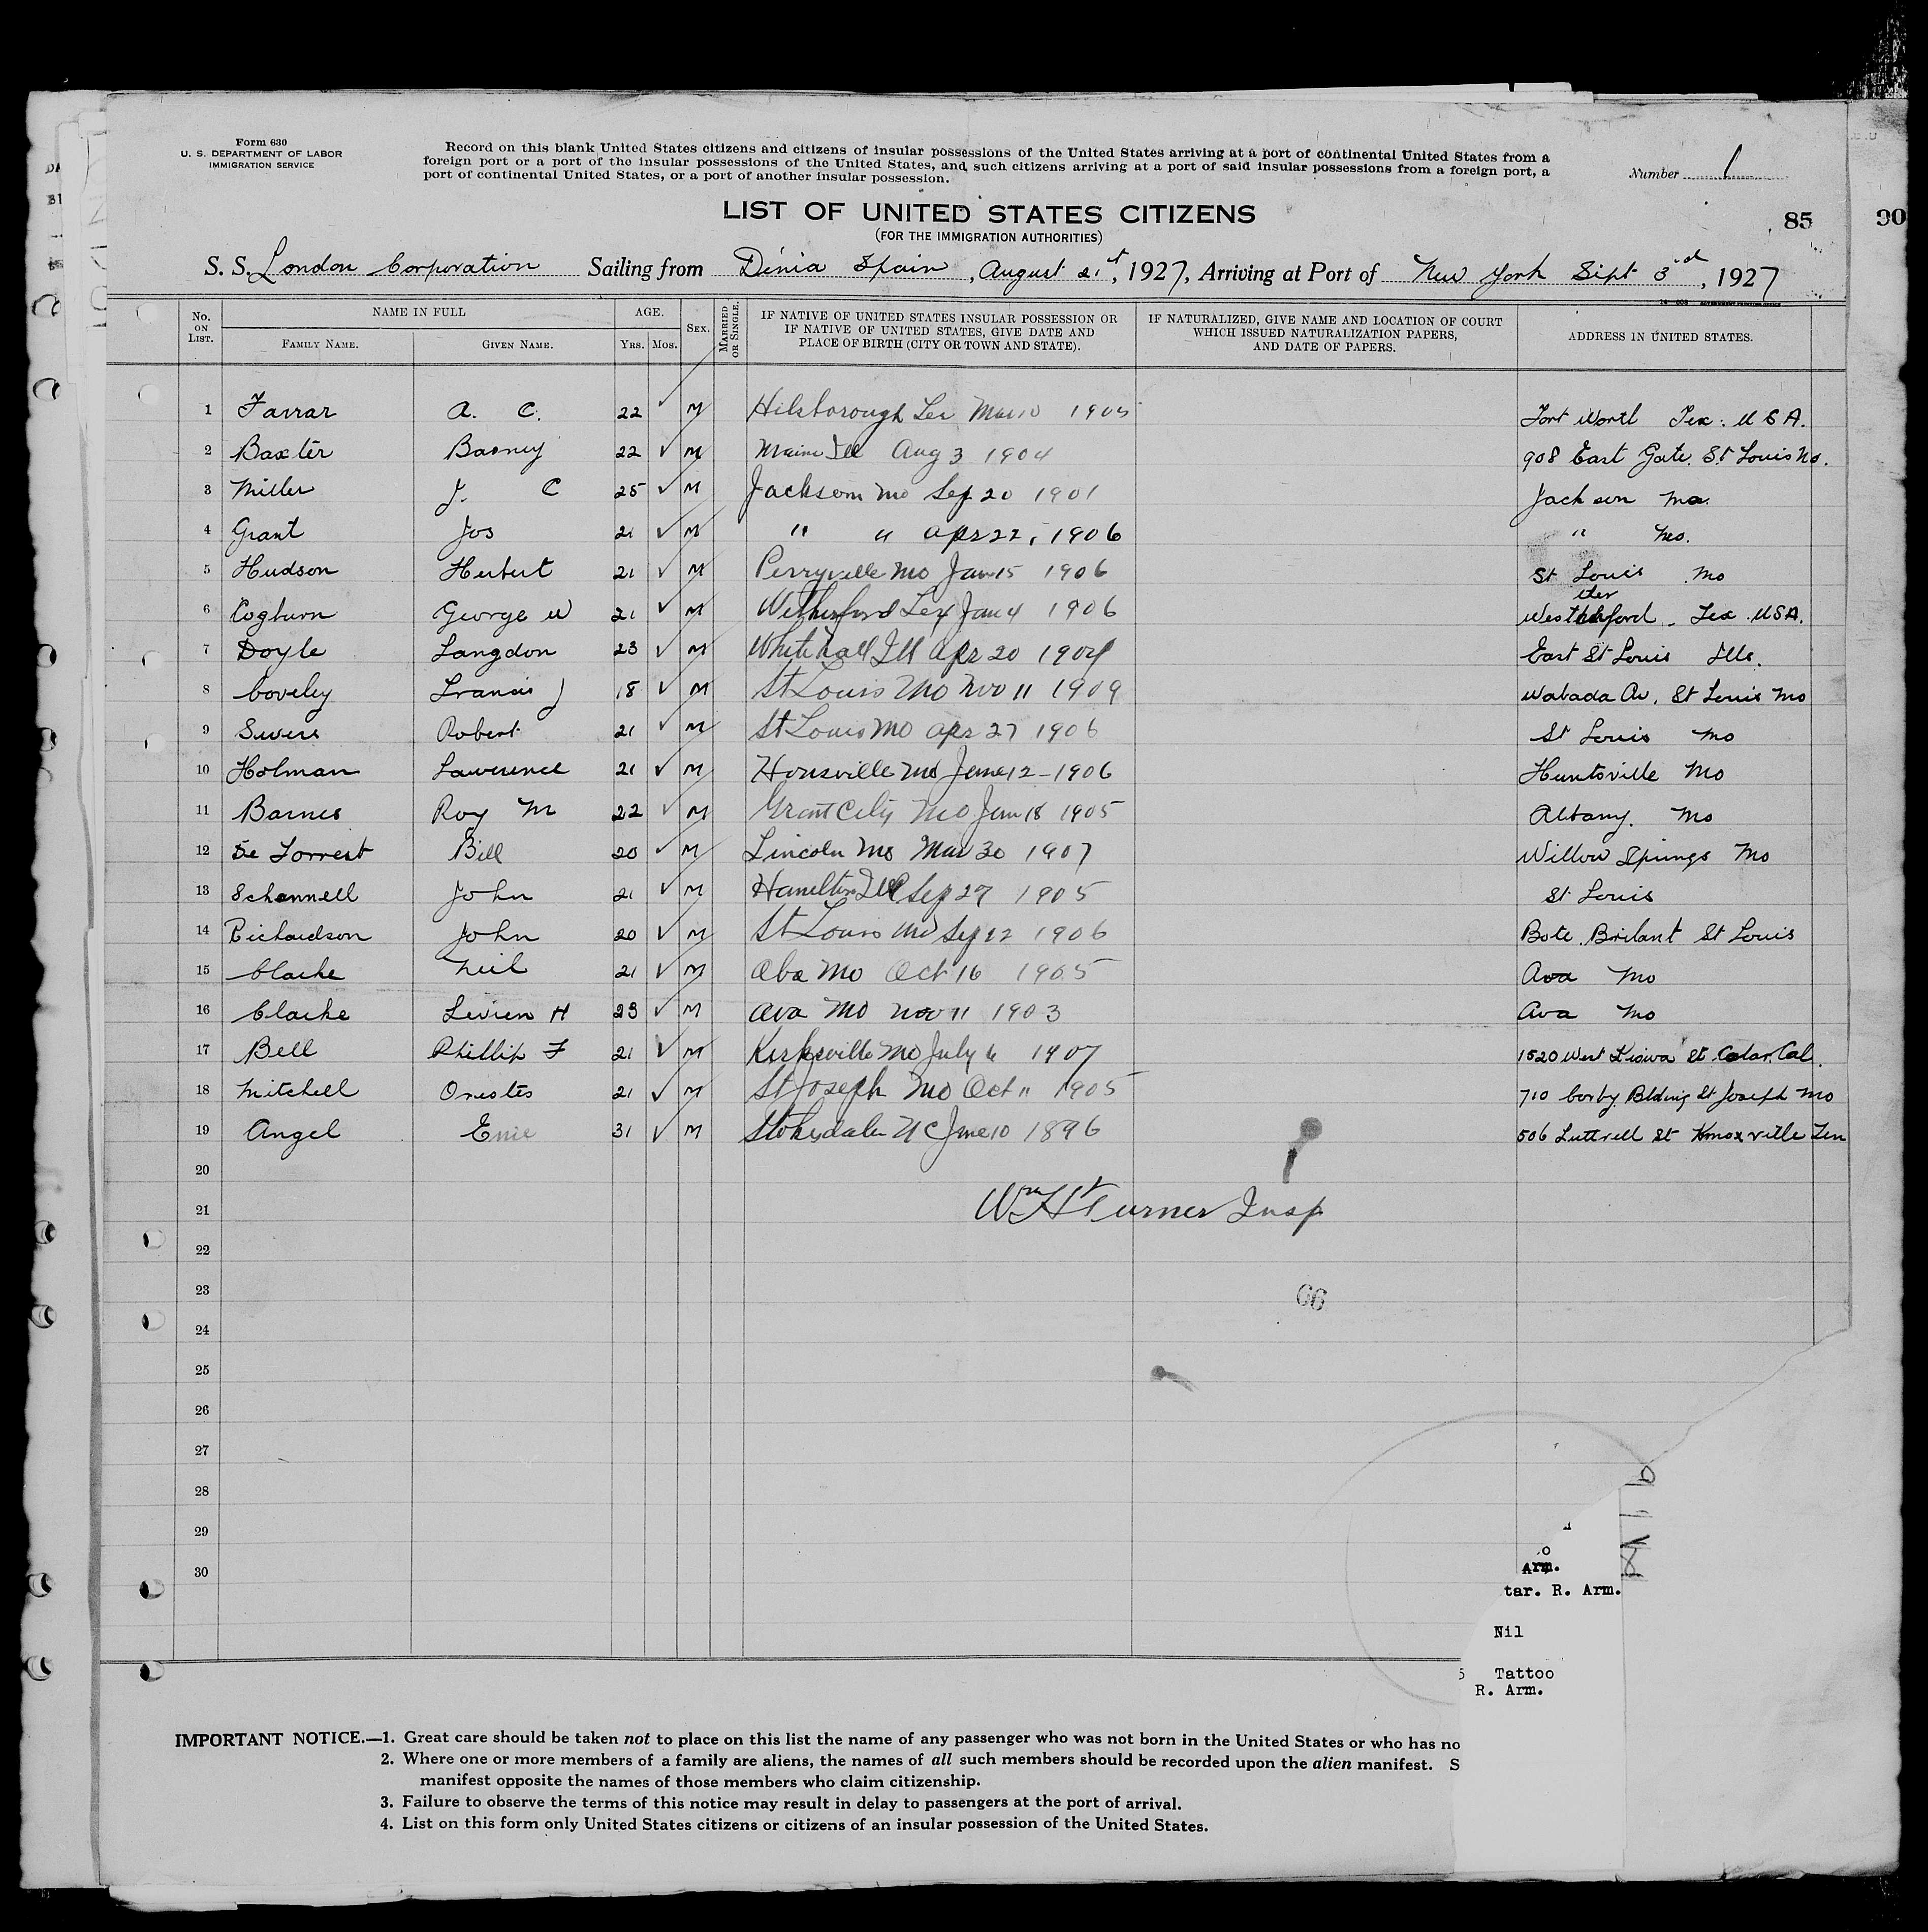 Form 630
U. S. DEPARTMENT OF LABOR
IMMIGRATION SERVICE
Record on this blank United States citizens and citizens of insular possessions of the United States arriving at a port of continental United States from a
foreign port or a port of the insular possessions of the United States, and such citizens arriving at a port of said insular possessions from a foreign port, a
port of continental United States, or a port of another insular possession.
Number 1
LIST OF UNITED STATES CITIZENS
(FOR THE IMMIGRATION AUTHORITIES)
85
90
S. S. London Corporation Sailing from Dinia Spain, August 21st, 1927, Arriving at Port of New York Sept 3rd, 1927
No. ON LIST. NAME IN FULL AGE. SEX. MARRIED OR SINGLE. IF NATIVE OF UNITED STATES INSULAR POSSESSION OR IF NATIVE OF UNITED STATES, GIVE DATE AND PLACE OF BIRTH (CITY OR TOWN AND STATE). IF NATURALIZED, GIVE NAME AND LOCATION OF COURT WHICH ISSUED NATURALIZATION PAPERS, AND DATE OF PAPERS. ADDRESS IN UNITED STATES.
FAMILY NAME. GIVEN NAME. YRS. MOS.
1 Farrar A. C. 22 M Hilsborough Mar 10 1905 Fort Worth Tex. U S A.
2 Baxter Barney 22 M Ill Aug 3 1904 908 East Gate. St Louis Mo.
3 Miller J. C 25 M Jackson Mo Sep 20 1901 Jackson Mo.
4 Grant Jos 21 M " " Apr 22, 1906 " Mo.
5 Hudson Herbert 21 M Perryville Mo Jan 15 1906 St Louis Mo
6 Cogburn George W 21 M Wetherford Tex Jan 4 1906 Tex. U S A.
7 Doyle Langdon 23 M Whitehall Ill Apr 20 1904 East St Louis Ills.
8 Coveley Francis J 18 M St Louis Mo Nov 11 1909 Wabada Av, St Louis Mo
9 Robert 21 M St Louis Mo Apr 27 1906 St Louis Mo
10 Holman Lawrence 21 M Mo June 12 - 1906 Huntsville Mo
11 Barnes Roy M 22 M Grant City Mo Jan 18 1905 Albany. Mo
12 De Forrest Bill 20 M Lincoln Mo Mar 30 1907 Willow Springs Mo
13 Schannell John 21 M Hamilton Ill Sep 27 1905 St Louis
14 Richardson John 20 M St Louis Mo Sep 12 1906 Bote Brilant St Louis
15 Clarke Neil 21 M Aba Mo Oct 16 1905 Ava Mo
16 Clarke H 23 M Ava Mo Nov 11 1903 Ava Mo
17 Bell Phillip F 21 M Kirksville Mo July 6 1907 1520 West Kiowa St. Cal.
18 Mitchell Orestes 21 M St Joseph Mo Oct 11 1905 710 Corby Blding St Joseph Mo
19 Angel Enie 31 M Stokesdale N C June 10 1896 506 Luttrell St Knoxville Ten
20
21 Wm H Turner Insp
22
23
66
24
25
26
27
28
29
30
Arm.
tar. R. Arm.
Nil
5 Tattoo
R. Arm.
IMPORTANT NOTICE.—1. Great care should be taken not to place on this list the name of any passenger who was not born in the United States or who has no
2. Where one or more members of a family are aliens, the names of all such members should be recorded upon the alien manifest. S
manifest opposite the names of those members who claim citizenship.
3. Failure to observe the terms of this notice may result in delay to passengers at the port of arrival.
4. List on this form only United States citizens or citizens of an insular possession of the United States.